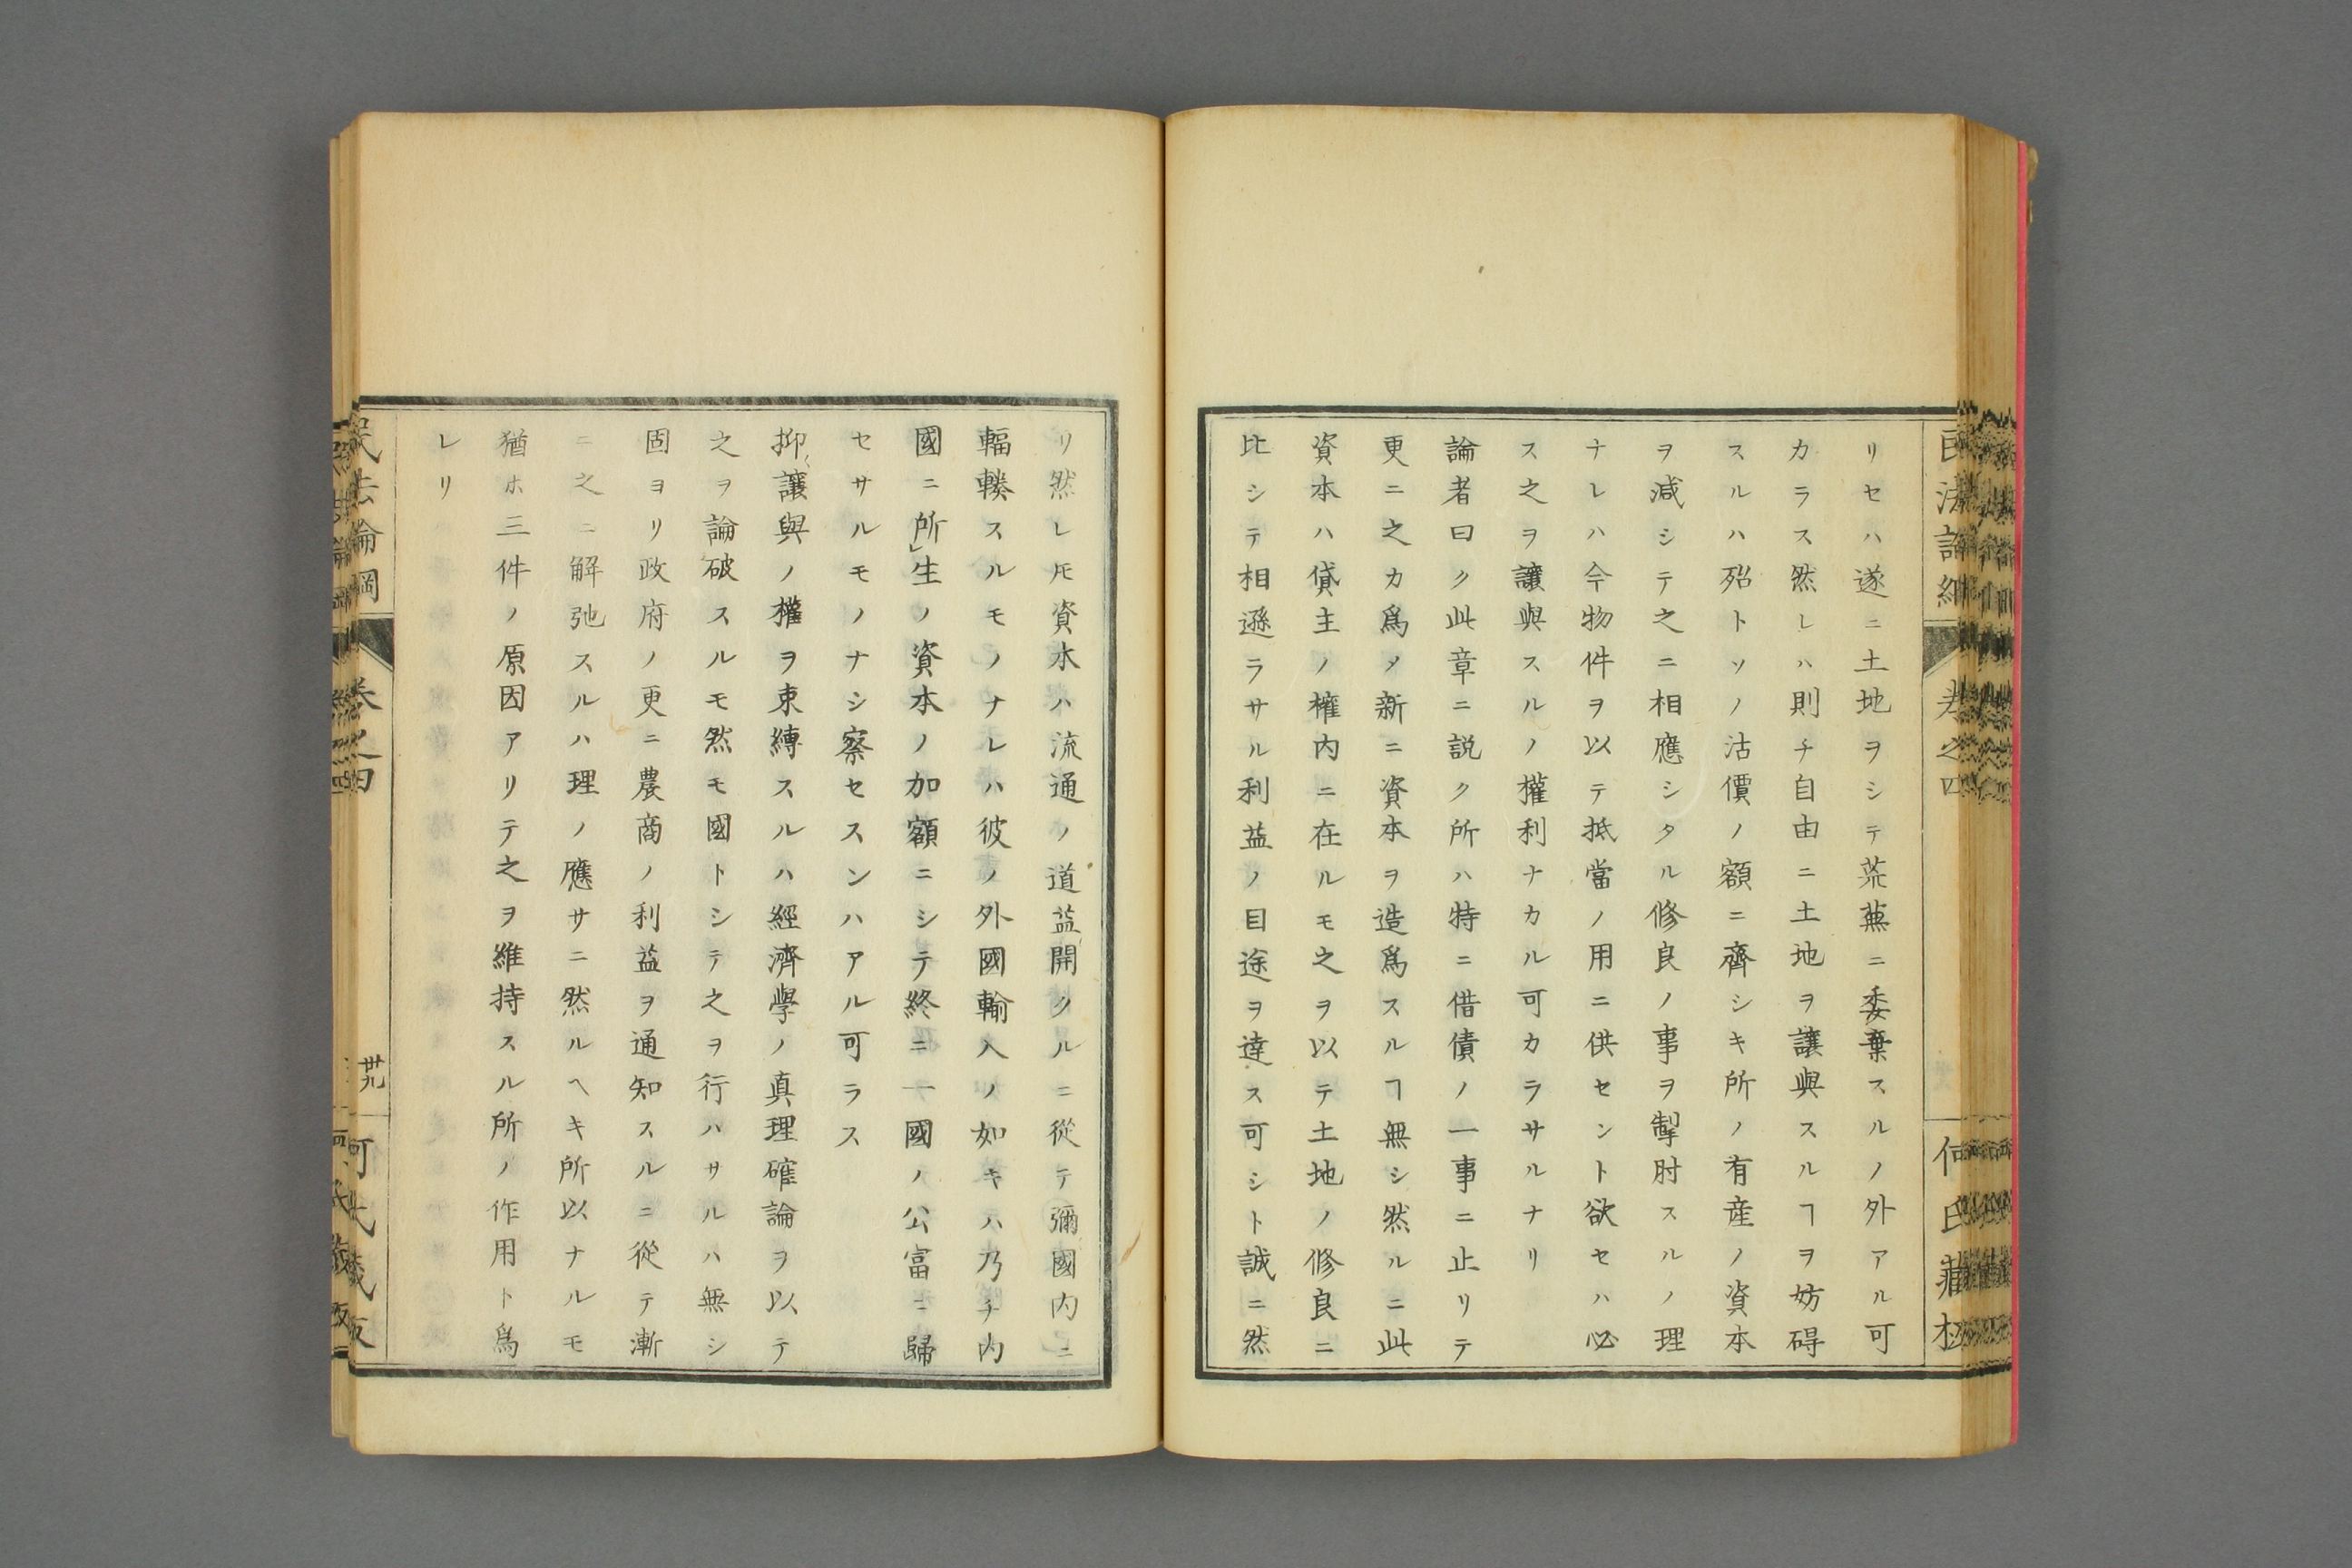 リセハ遂ニ土地ヲシテ荒蕪ニ委棄スルノ外アル可
カラス然レハ則チ自由ニ土地ヲ讓與スルヿヲ妨碍
スルハ殆トソノ沽價ノ額ニ齊シキ所ノ有産ノ資本
ヲ減シテ之ニ相應シタル修良ノ事ヲ掣肘スルノ理
ナレハ今物件ヲ以テ抵當ノ用ニ供セント欲セハ必
ス之ヲ讓與スルノ權利ナカル可カラサルナリ
論者曰ク此章ニ説ク所ハ特ニ借債ノ一事ニ止リテ
更ニ之カ爲メ新ニ資本ヲ造爲スルヿ無シ然ルニ此
資本ハ貸主ノ權内ニ在ルモ之ヲ以テ土地ノ修良ニ
比シテ相遜ラサル利益ノ目途ヲ達ス可シト誠ニ然
リ然レ𪜈資本ハ流通ノ道益開クルニ從テ彌國内ニ
輻輳スルモノナレハ彼ノ外國輸入ノ如キハ乃チ内
國ニ所生ノ資本ノ加額ニシテ終ニ一國ノ公富ニ歸
セサルモノナシ察セスンハアル可ラス
抑讓與ノ權ヲ束縛スルハ經濟學ノ真理確論ヲ以テ
之ヲ論破スルモ然モ國トシテ之ヲ行ハサルハ無シ
固ヨリ政府ノ更ニ農商ノ利益ヲ通知スルニ從テ漸
ニ之ニ解弛スルハ理ノ應サニ然ルヘキ所以ナルモ
猶ホ三件ノ原因アリテ之ヲ維持スル所ノ作用ト爲
レリ
民法論綱
卷之四
卅九
何氏藏板